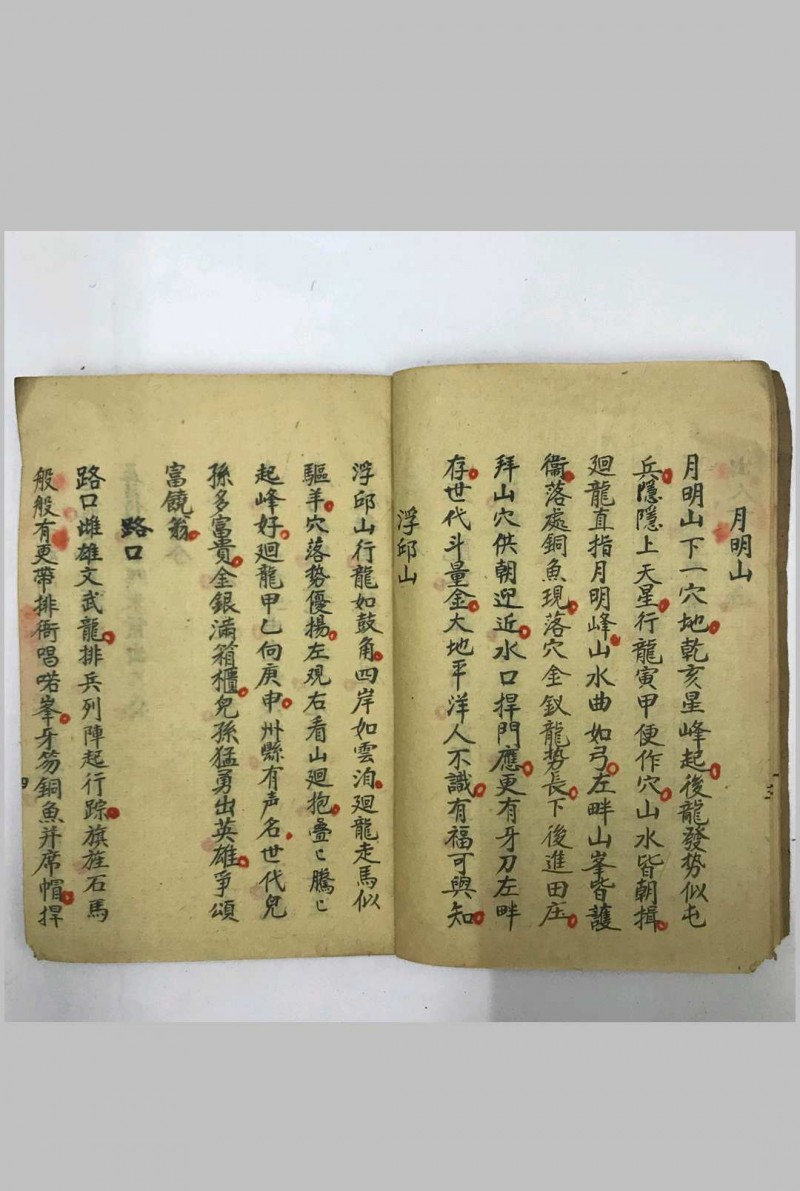 月明山
月明山下一穴地乾亥星峰起後龍發勢似屯
兵隱隱上天星行龍寅甲便作穴山水皆朝揖
廻龍直指月明峰山水曲如弓左畔山峯皆護
衛落處銅魚現落穴金釵龍勢長下後進田庄
拜山穴供朝迎近水口捍門應更有牙刀左畔
存世代斗量金大地平洋人不識有福可與知
浮邱山
浮邱山行龍如鼓角四岸如雲泊廻龍走馬似
驅羊穴落勢優揚左观右看山廻抱叠〻騰〻
起峰好廻龍甲乙向庚申州縣有声名世代兒
孫多富貴金銀滿箱櫃兒孫猛勇出英雄爭頌
富饒翁
路口
路口雌雄文武龍排兵列陣起行踪旗旌石馬
般般有更帶排衙唱喏峯牙笏銅魚并席帽捍
三
四